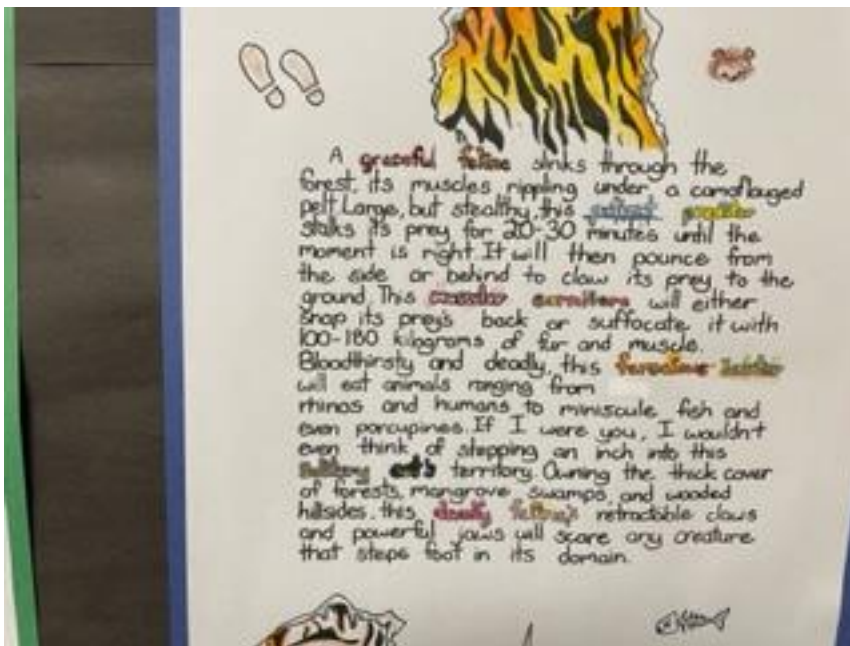 A graceful feline slinks through the
forest, its muscles rippling under a camoflauged
pelt. Large, but stealthy, this patient
stalks its prey for 20-30 minutes until the
moment is right. It will then pounce from
the side or behind to claw its prey to the
ground. This muscular carnivore will either
snap its prey's back or suffocate it with
100-180 kilograms of fur and muscle.
Bloodthirsty and deadly, this ferocious hunter
will eat animals ranging from
rhinos and humans to miniscule fish and
even porcupines. If I were you, I wouldn't
even think of stepping an inch into this
solitary cat's territory. Owning the thick cover
of forests, mangrove swamps, and wooded
hillsides, this deadly feline's retractable claws
and powerful jaws will scare any creature
that steps foot in its domain.